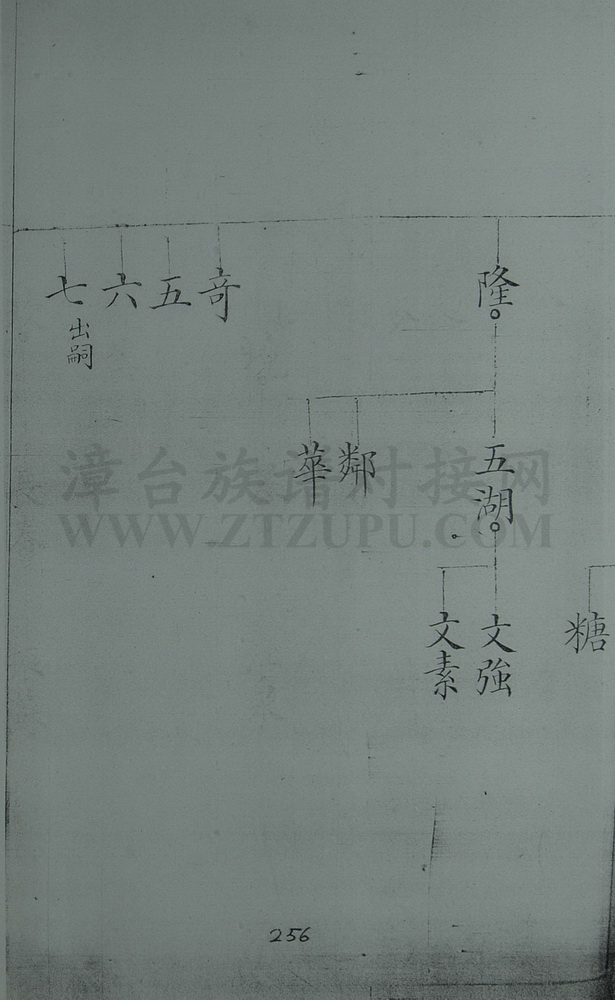 隆
奇
五
六
七
出嗣
五湖
鄰
華
糖
文強
文素
漳台族谱对接网
WWW.ZTZUPU.COM
256